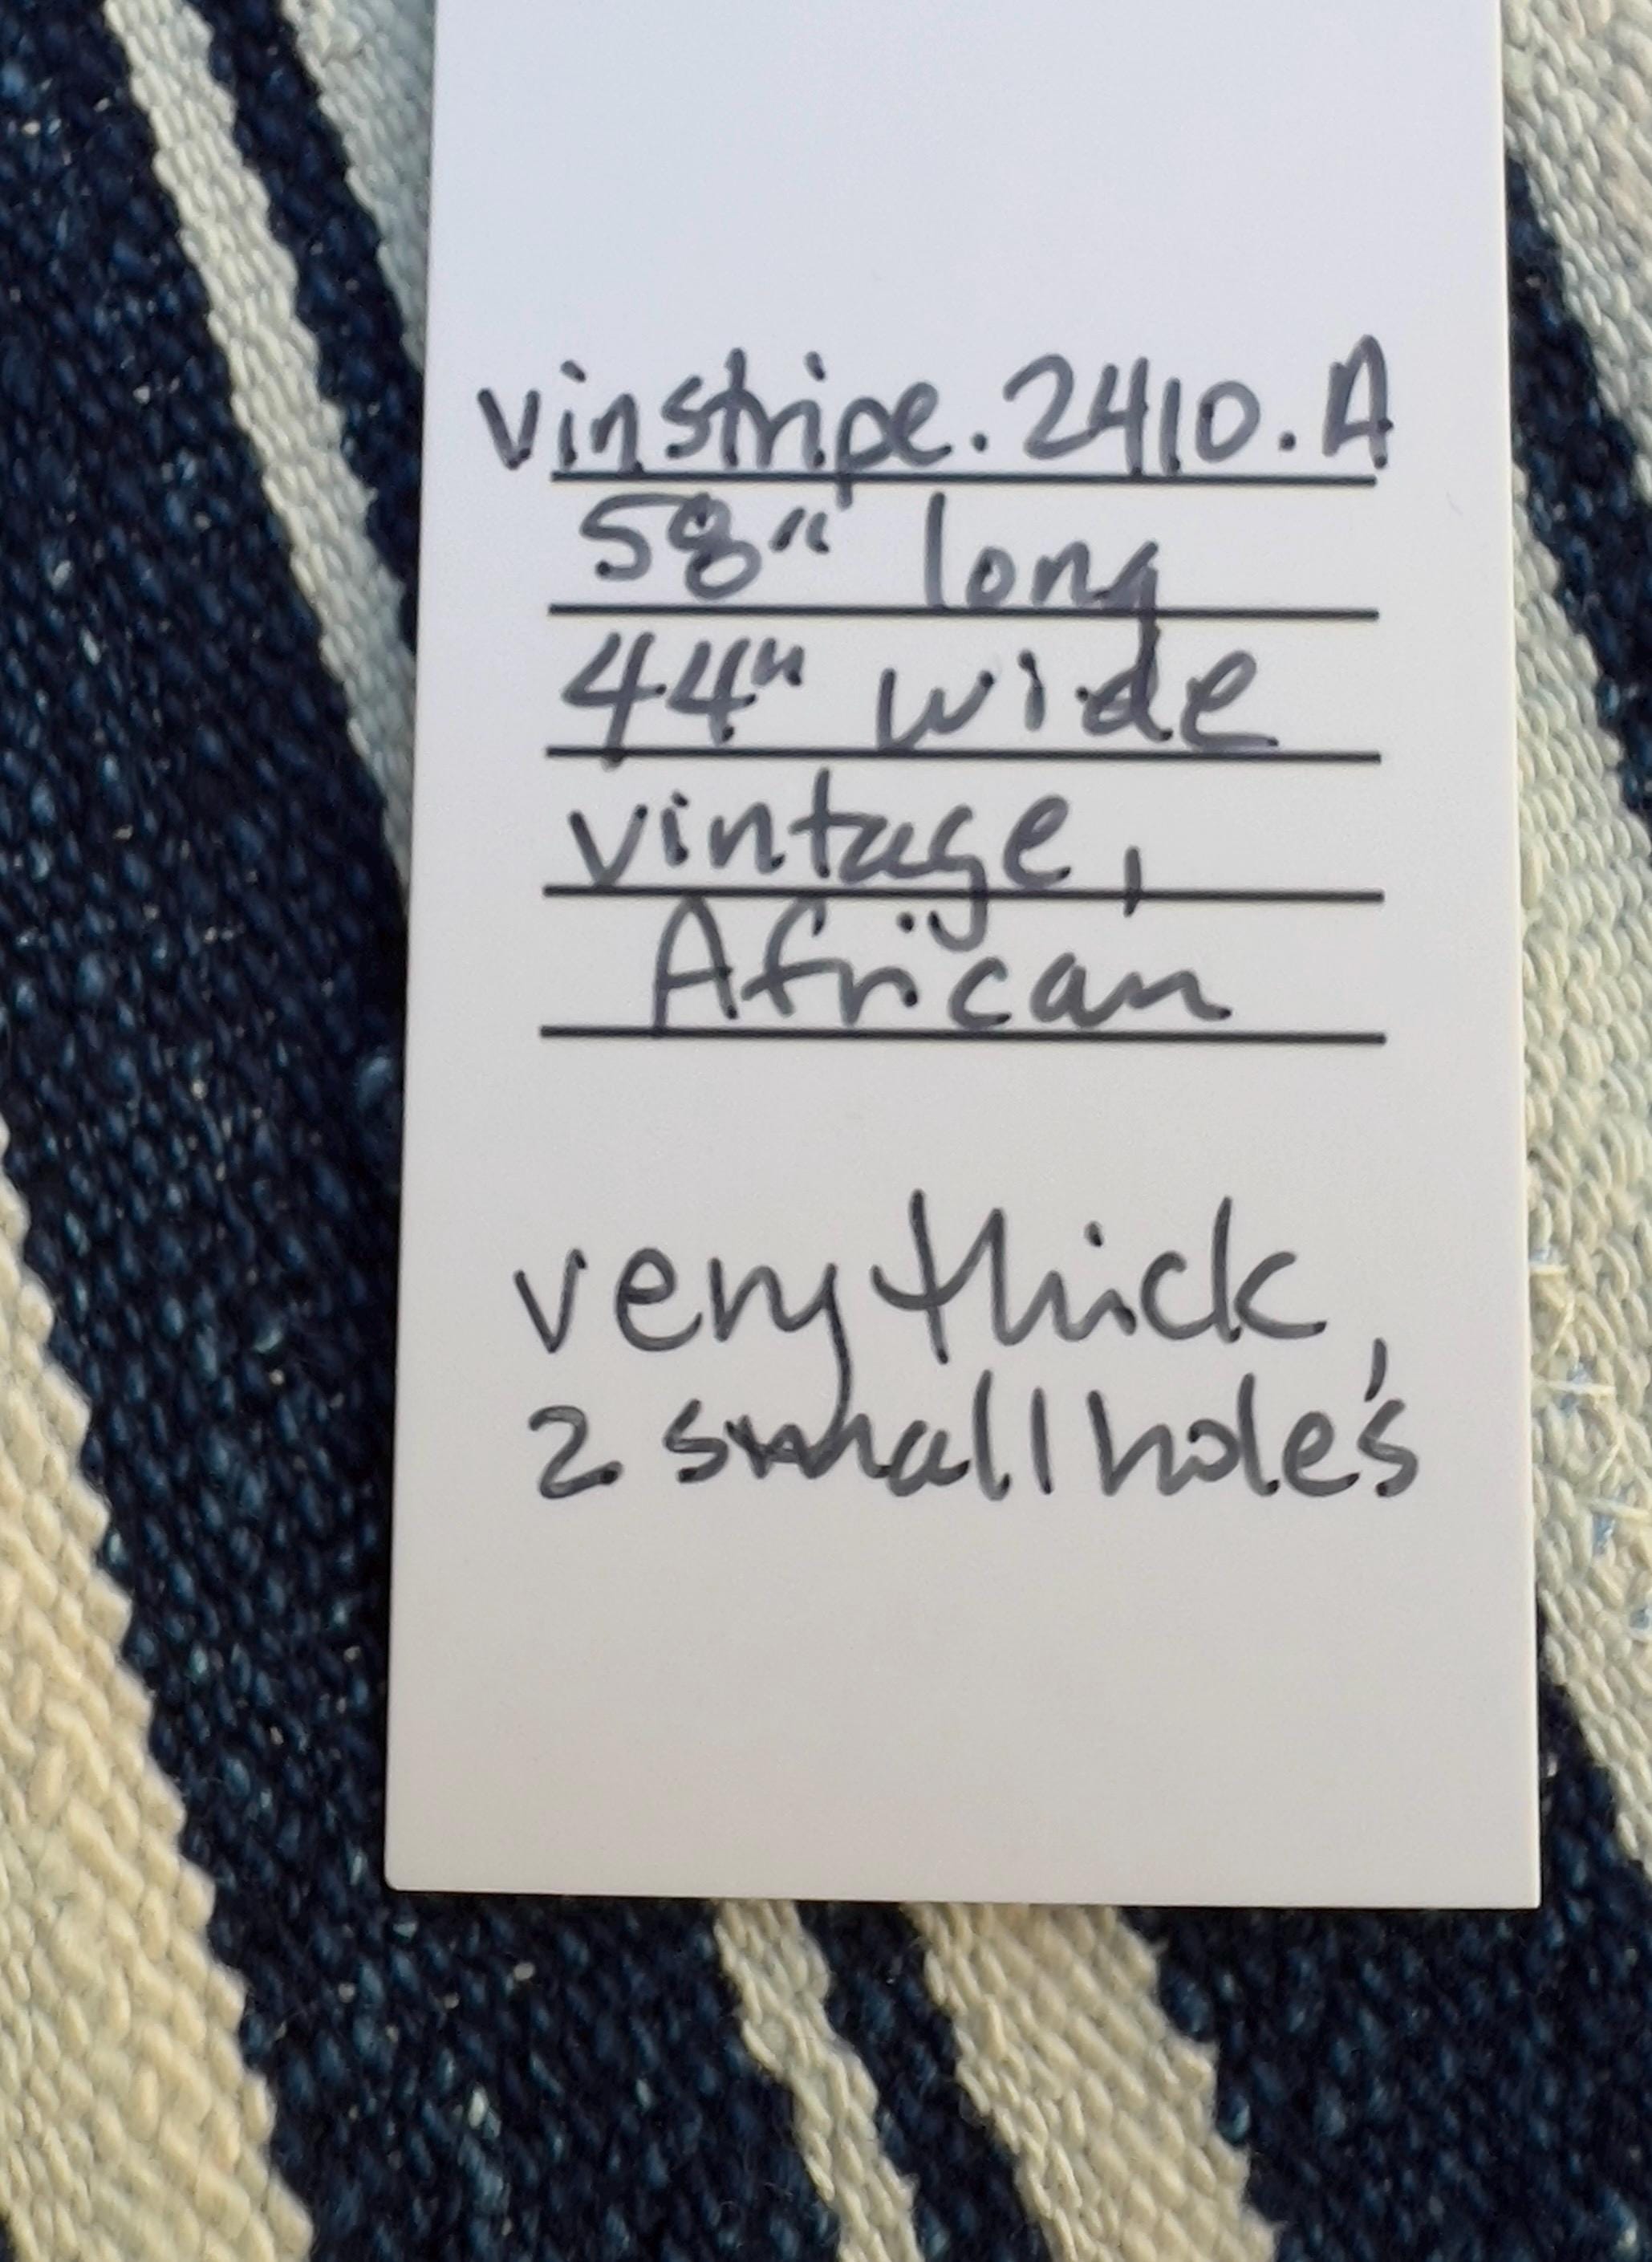 vinstripe.2410.A
58" long
44" wide
vintage,
African
very thick,
2 small hole's